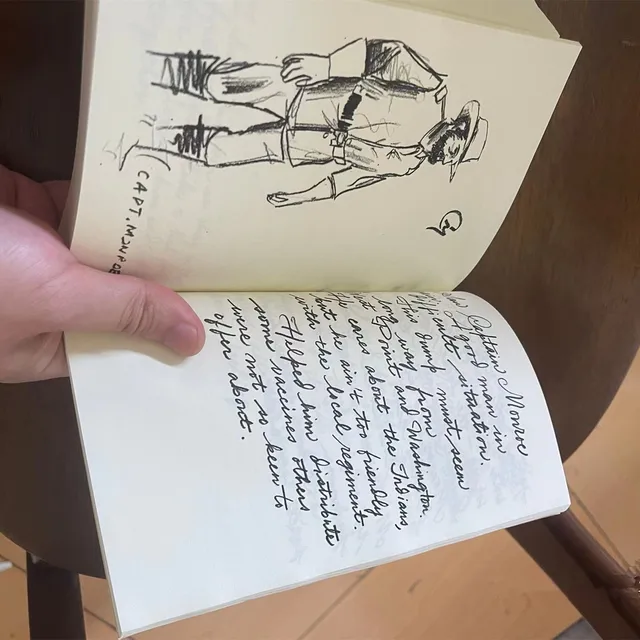 CAPT. MONROE
Captain Monroe
A good man in
situation.
This dump must seen
long way from
Point and Washington.
He cares about the Indians,
but he ain't too friendly
with the local regiment.
Helped him distribute
some vaccines others
were not so keen to
offer about.